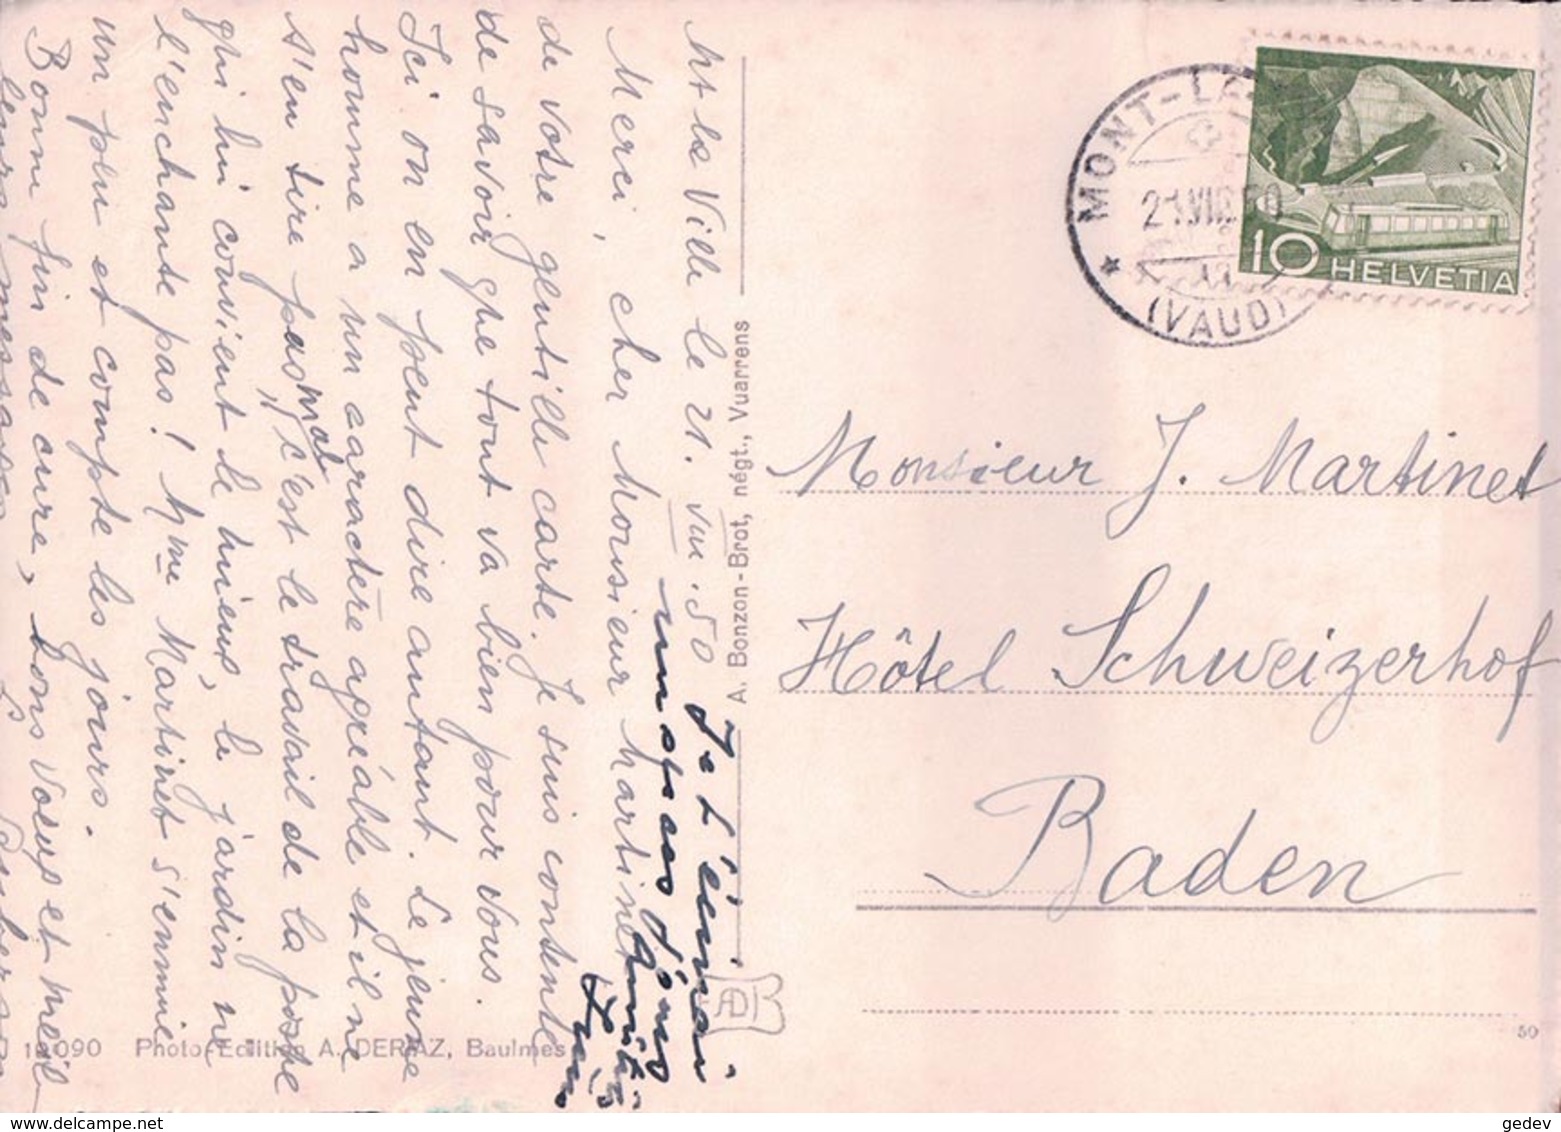 Mt la Ville le 21. VIII. 50
Merci, cher Monsieur Martinet
de votre gentille carte. Je suis contente
de savoir que tout va bien pour vous.
Ici on en peut dire autant. Le jeune
homme a un carractère agréable et il ne
s'en tire pas mal, c'est le travail de la poste
qui lui convient le mieux, le jardin ne
l'enchante pas! Mme Martinet s'ennuie
un peu et compte les jours.
Bonne fin de cure, bons voeux et meil
Je l'écrirai
A. Bonzon-Brot, négt., Vuarrens
12090 Photo-Edition A. DERIAZ, Baulmes
AD
MONT-LA-
21.VIII.50
(VAUD)
10 HELVETIA
Monsieur J. Martinet
Hôtel Schweizerhof
Baden
50
gedev